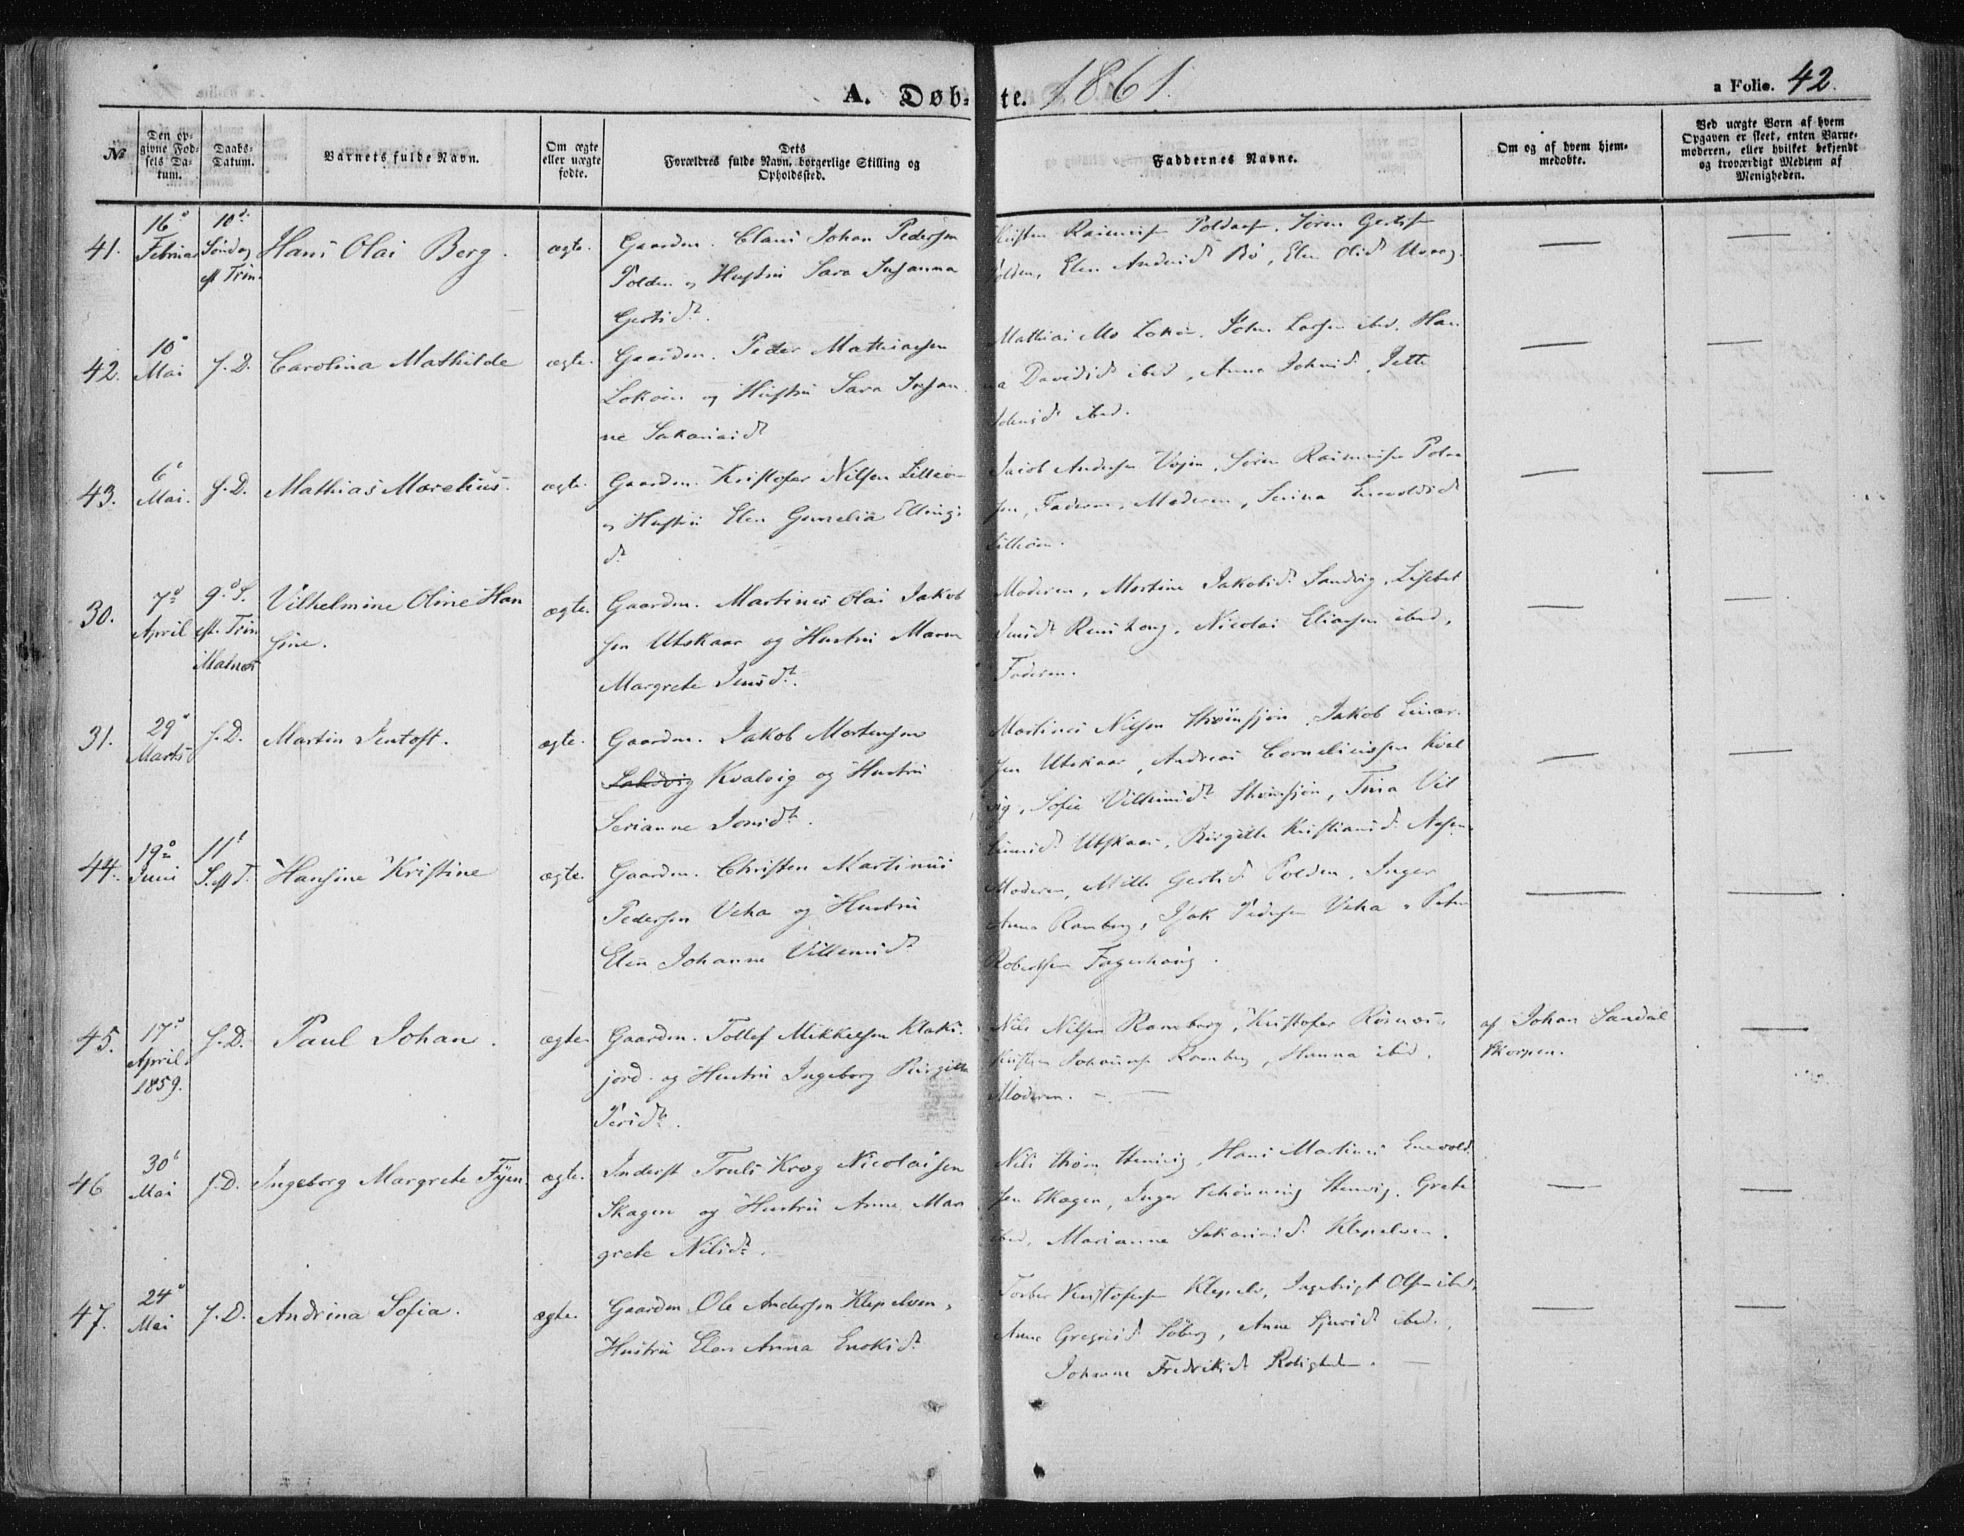 A. Døb- te. 1861. a Folio. 42.
№
Den op-
givne Fød-
sels Da-
tum.
Daabs-
Datum.
Barnets fulde Navn.
Om ægte
eller uægte
fødte.
Dets
Forældres fulde Navn, borgerlige Stilling og
Opholdssted.
Faddernes Navne.
Om og af hvem hjem-
medøbte.
Ved uægte Børn af hvem
Opgaven er skeet, enten Barne-
moderen, eller hvilket bekjendt
og troværdigt Medlem af
Menigheden.
41.
16
Februar
10
Søndag
eft Trin
Hans Olai Berg.
ægte.
Gaardm. Claus Johan Pedersen
Polden og Hustru Sara Susanna
Gertsdt.
Polden, Elen Andersdt Bø, Elen Olsdt
42.
10
Mai
s. D.
Carolina Mathilde
ægte.
Gaardm. Peder Mathiassen
Lokøen og Hustru Sara Susan
ne Sakariasdt
Mathias Mo Lokøen, John Larsen ibid, Han
na Davidsdt ibid, Anna Johnsdt, Jette
ibid.
43.
6
Mai.
s. D.
Mathias Morelius.
ægte.
Gaardm. Kristofer Nilsen Lilleø
og Hustru Elen Gurnelia Ellings
dt
Jacob Andersen, Søren
sen, Faderen, Moderen, Serina Enevoldsdt
30.
7
April
9 S.
eft. Trin
Vilhelmine Oline Han
sine.
ægte.
Gaardm. Martines Olai Jakob
sen Utskaar og Hustru Maren
Margrete Jensdt.
Moderen, Martine Jakobsdt Sandvig, Lisebet
Jensdt, Nicolai Eliassen ibid,
Faderen.
31.
29
Marts
s. D.
Martin Jentoft.
ægte.
Gaardm. Jakob Mortensen
Kvalvig og Hustru
Serianne Jonsdt.
Martines Nilsen, Jakob
sen Utskaar, Andreas Corneliussen Kval
vig, Sofie, Trina Vil
Utskaar, Birgitte Kristiansdt
44.
19
Juni
11
S. eft T.
Hansine Kristine
ægte.
Gaardm. Christen Martinus
Pedersen Veha og Hustru
Elen Johanna Villumsdt
Moderen, Mille Gertsdt Polden, Inger
Anna Ramberg, Isak Pedersen Veha, Peter
Robertsen Fagerhaug.
45.
17
April
1859.
s. D.
Paul Johan.
ægte.
Gaardm. Tollef Mikkelsen Klaks-
jord og Hustru Ingeborg Birgitta
Persdt.
Nils Nilsen Ramberg, Kristofer Risnæs,
Kristen Johansen Ramberg, Hanna ibid.
Moderen.
af Johan Sandal
Skorpen.
46
30
Mai
s. D.
Ingeborg Margrete Fyen
ægte.
Inderst Truls Krog Nicolaisen
Skagen og Hustru Anne Mar
grete Nilsdt.
Nils, Hans Martinus Enevold
sen Skagen, Inger Schønning, Grete
ibid, Marianne Sakariasdt Klepelven.
47.
24
Mai
s. D.
Andrina Sofia.
ægte.
Gaardm Ole Andersen Klepelven,
Hustru Elen Anna Enoksdt
Torber Kristofersen Klepelv, Ingebrigt Olsen ibid,
Anne Gregersdt Søberg, Anne Sjursdt ibid.,
Johanne Fredriksdt Roligheden.